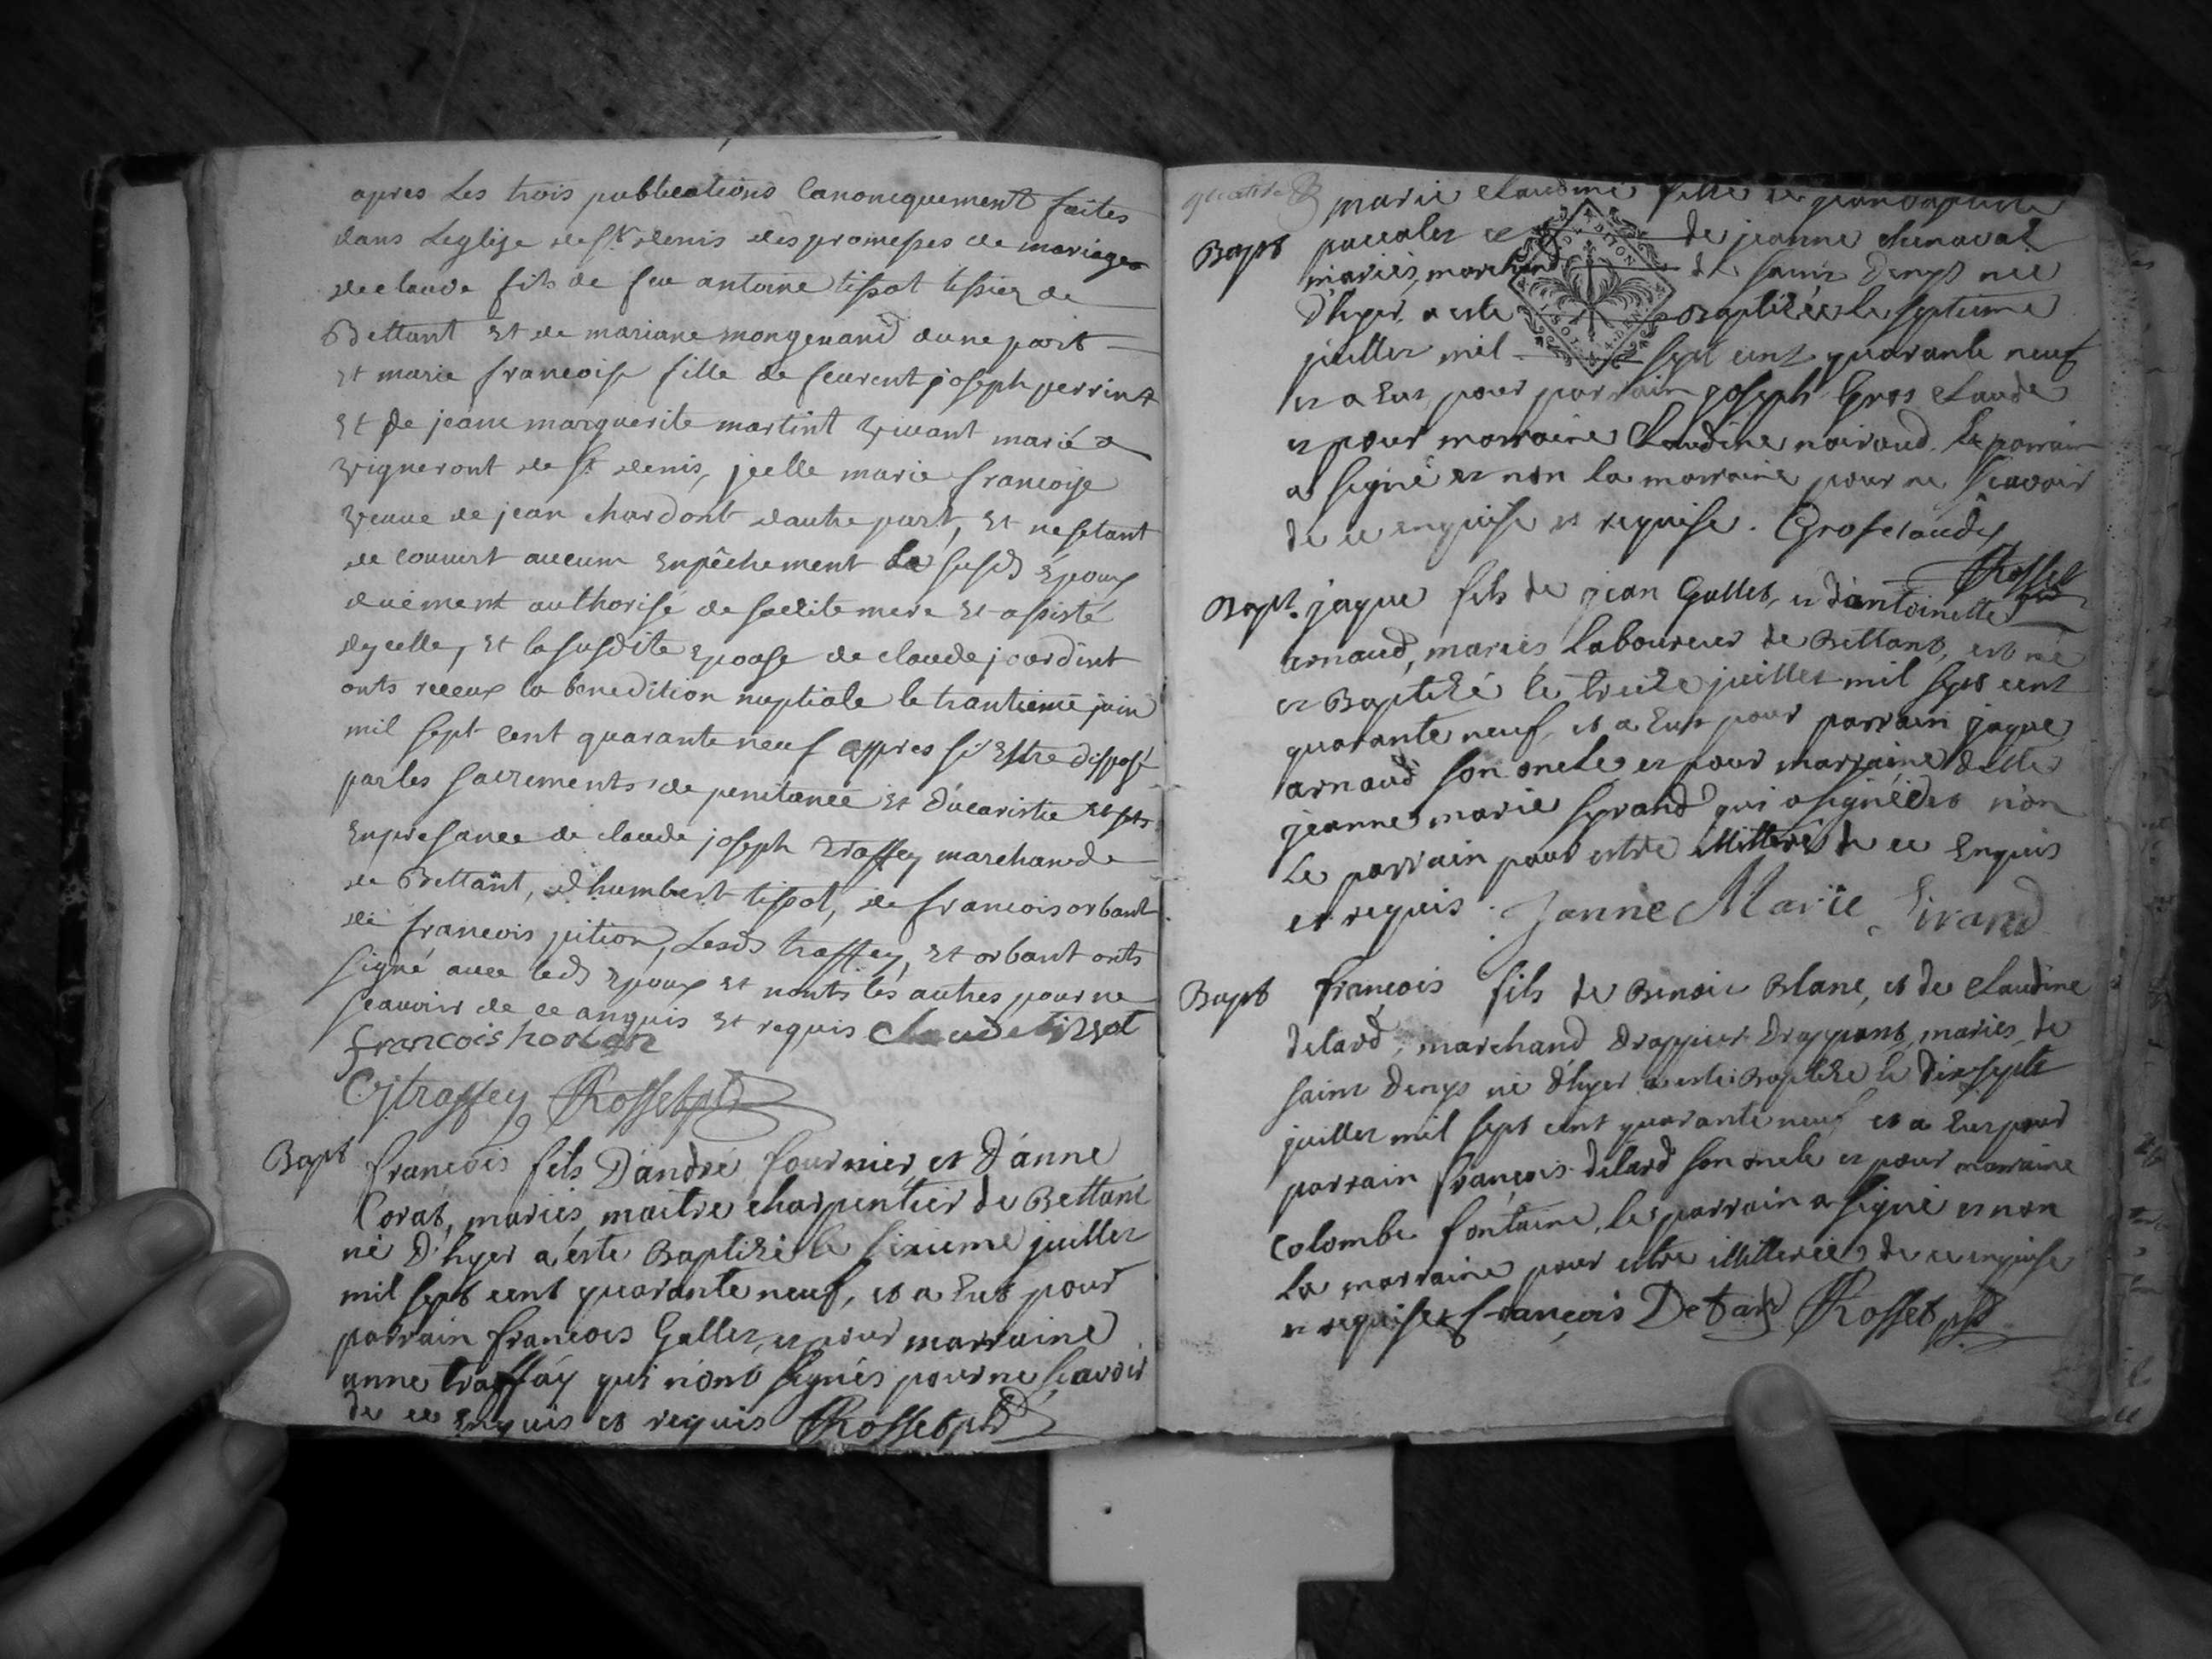 apres Les trois publications Canoniquement faites
dans Leglise de St denis des promesses de mariage
de claude fils de feu antoine tissot tissier de
Bettant Et de mariane mongenand dune part
et marie francoise fille de feurent joseph perrin
Et de jeane marguerite martint vivant marié
vigneront de St denis, jcelle marie francoise
veuve de jean chardont dautre part, Et nesetant
de couvert aucum Enpêchement le susd Epoux
duëment authorisé de sadite mere Et assisté
dycelle, Et la susdite Epouse de claude jourdint
onts receux la benedition nuptiale le trantieme juin
mil sept cent quarante neuf appres si Estre disposé
par les sacrements de penitance Et d'ucaristie
Enpresance de claude joseph traffey marchand
de Bettant, d'humbert tissot, de francois orbant
de francois pition, Lesd traffey, Et orbant onts
signé avec led Epoux Et nonts les autres pour ne
scavoir de ce anquis Et requis Claude tissot
francois horban
Cjtraffey Rosset
Bapt francois fils D'andré fournier, et D'anne
Corat, mariés, maitre charpentier de Bettant
né D'hyer a éste Baptizé le sixieme juillet
mil sept cent quarante neuf, et a Eut pour
parrain francois Gallet, et pour marraine
anne traffay qui n'ont signés pour ne scavoir
de ce Enquis et requis Rosset
marie claudine fille de jean baptiste
Bapt paccalet et de jeanne chenaval
mariés, marchand de saint Denys née
D'hyer, a este Baptizée le septieme
juillet mil sept cent quarante neuf
et a Eut pour parrain joseph Gros claude
et pour marraine Claudine noiraud. Le parrain
a signé et non la marraine pour ne scavoir
de ce enquise et requise. Grosclaude
Rosset
Bapt. jaque fils de jean Gallet, et d'antoinette
arnaud, mariés Laboureur de Bettant, est né
et Baptizé le treize juillet mil sept cent
quarante neuf, et a Eut pour parrain jaque
arnaud son oncle et pour marraine delle
jeanne marie sirand qui a signée et non
Le parrain pour estre illitteré de ce Enquis
et requis. Janne Marïe Sirand
Bapt françois fils de Benoit Blanc, et de claudine
delard, marchand Drappier Drappant, mariés, de
saint Denys né d'hyer a esté Baptizé le dixsept
juillet mil sept cent quarante neuf et a Eut pour
parrain françois delard son oncle et pour marraine
Colombe fontaine, le parrain a signé et non
La marraine pour estre illitterée de ce enquise
et requise françois Delard Rosset